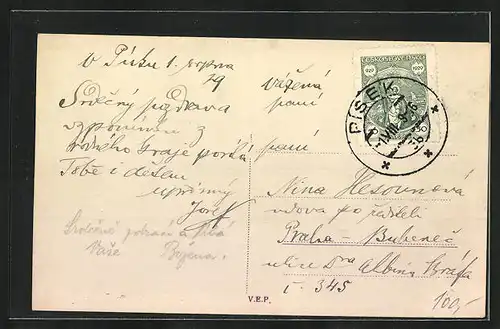 v Písku 1. srpna
29
Srdečný pozdrav a
vzpomínku z
rodného kraje posílá
Tobě i dětem
upřímný
Josef
Srdečně pozdravuje
Vaše Božena
V.E.P.
Vážená
paní
paní
Nina Hesounová
vdova po řediteli
Praha - Bubeneč
ulice Dra Albína Bráfa
č. 345
100,-
ČESKOSLOVENSKO
929 1929
PÍSEK